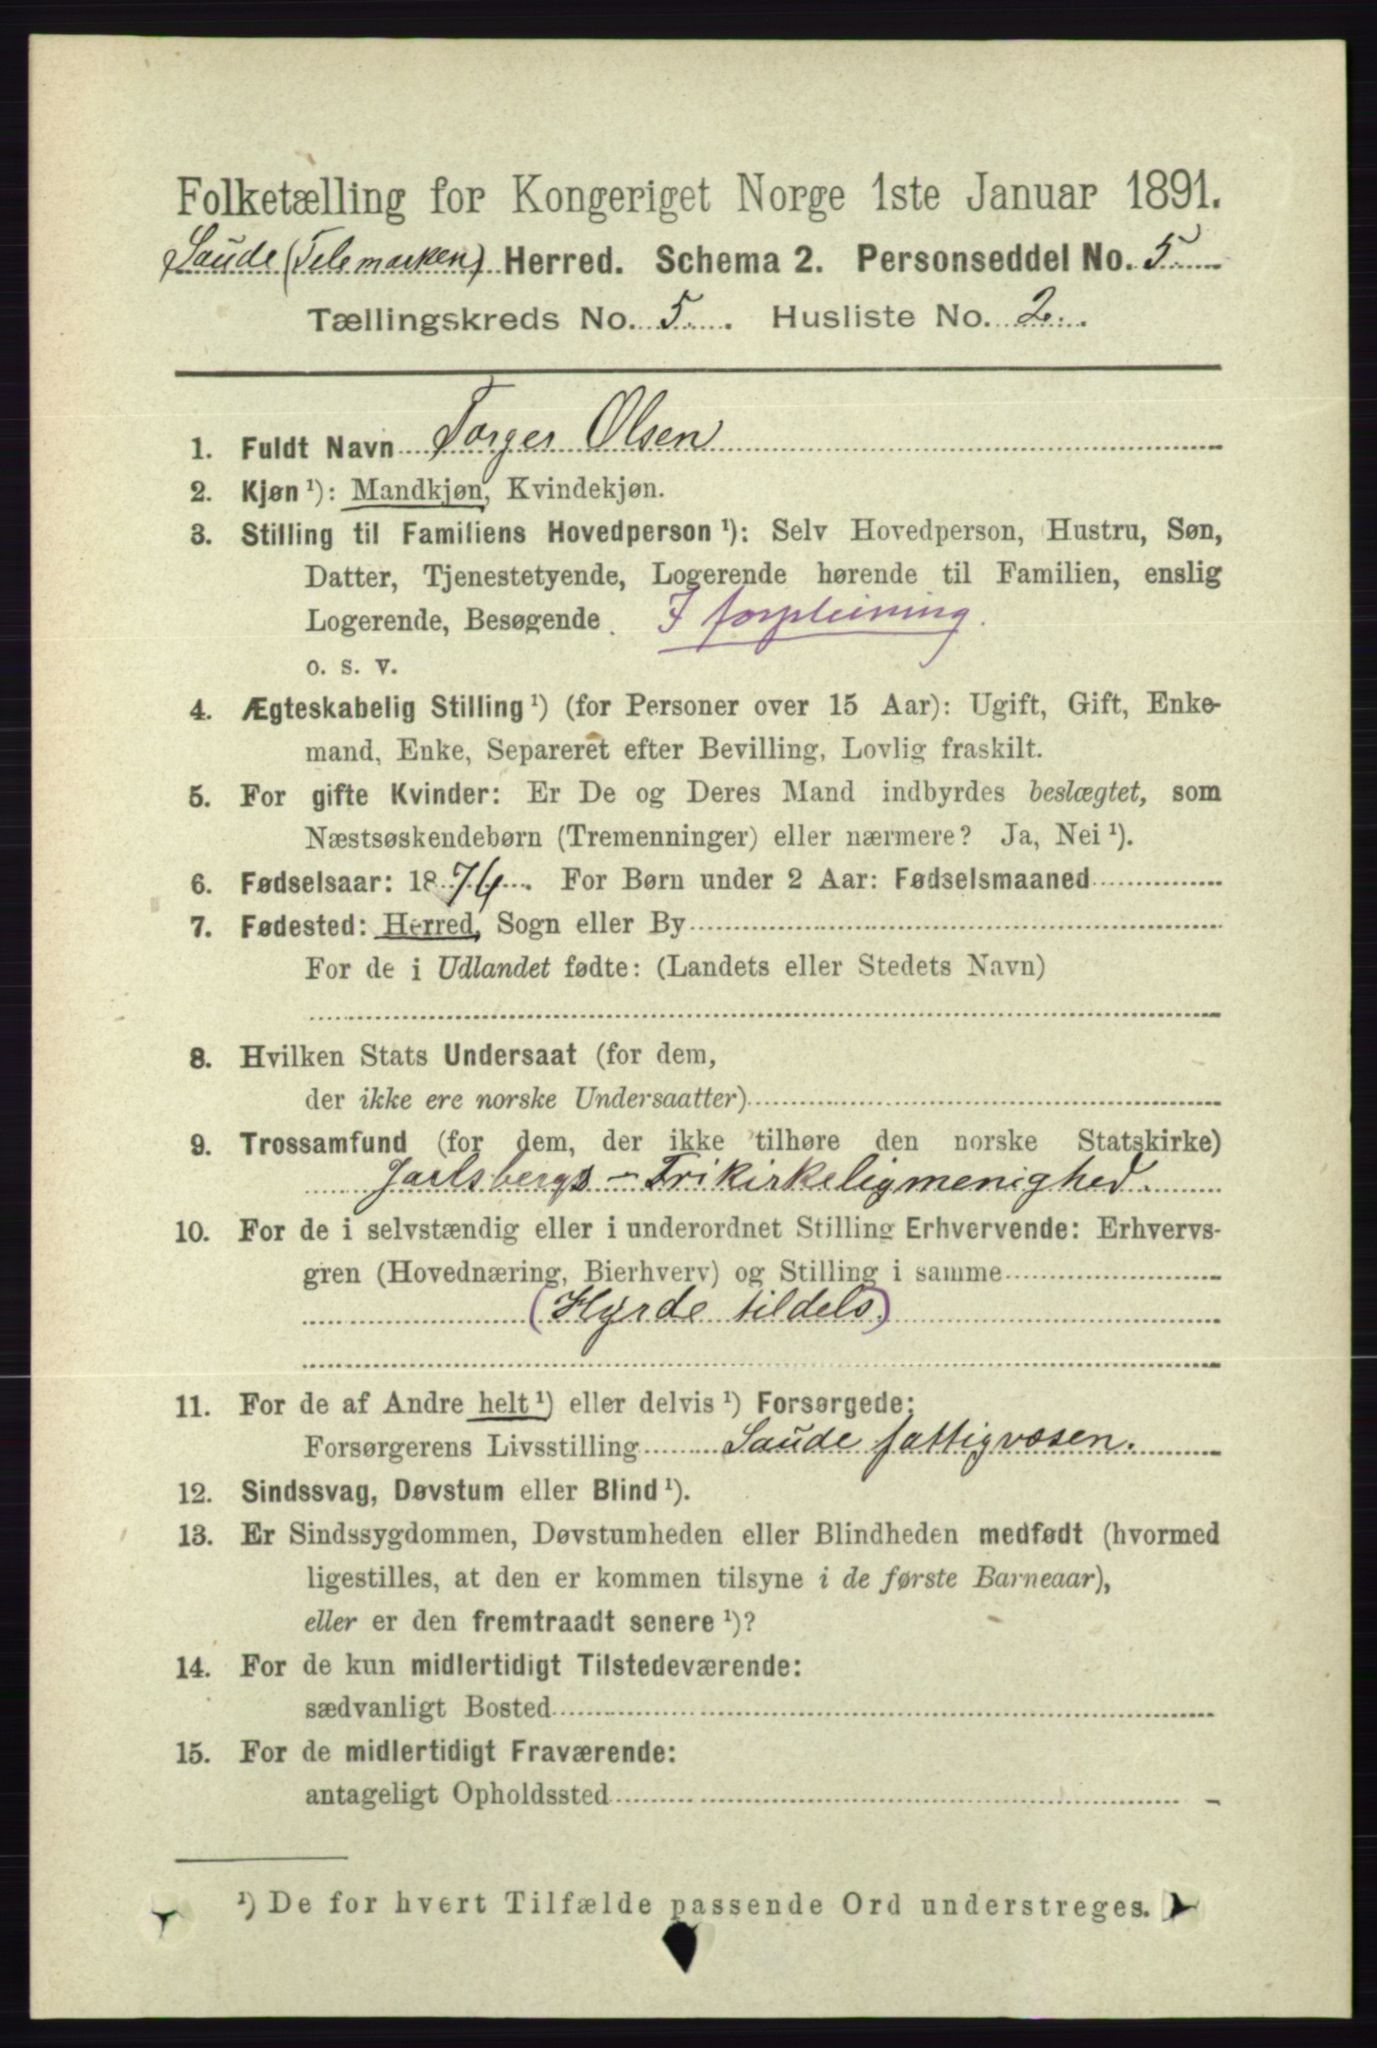 Folketælling for Kongeriget Norge 1ste Januar 1891.
Saude (Telemarken) Herred. Schema 2. Personseddel No. 5
Tællingskreds No. 5. Husliste No. 2.
1. Fuldt Navn Torger Olsen
2. Kjøn ¹): Mandkjøn, Kvindekjøn.
3. Stilling til Familiens Hovedperson ¹): Selv Hovedperson, Hustru, Søn,
Datter, Tjenestetyende, Logerende hørende til Familien, enslig
Logerende, Besøgende. I forpleining.
o. s. v.
4. Ægteskabelig Stilling ¹) (for Personer over 15 Aar): Ugift, Gift, Enke-
mand, Enke, Separeret efter Bevilling, Lovlig fraskilt.
5. For gifte Kvinder: Er De og Deres Mand indbyrdes beslægtet, som
Næstsøskendebørn (Tremenninger) eller nærmere? Ja, Nei ¹).
6. Fødselsaar: 1874. For Børn under 2 Aar: Fødselsmaaned
7. Fødested: Herred, Sogn eller By
For de i Udlandet fødte: (Landets eller Stedets Navn)
8. Hvilken Stats Undersaat (for dem,
der ikke ere norske Undersaatter)
9. Trossamfund (for dem, der ikke tilhøre den norske Statskirke)
Jarlsbergs - Frikirkeligmenighed.
10. For de i selvstændig eller i underordnet Stilling Erhvervende: Erhvervs-
gren (Hovednæring, Bierhverv) og Stilling i samme
(Hyrde tildels)
11. For de af Andre helt ¹) eller delvis ¹) Forsørgede:
Forsørgerens Livsstilling Saude fattigvæsen.
12. Sindssvag, Døvstum eller Blind ¹).
13. Er Sindssygdommen, Døvstumheden eller Blindheden medfødt (hvormed
ligestilles, at den er kommen tilsyne i de første Barneaar),
eller er den fremtraadt senere ¹)?
14. For de kun midlertidigt Tilstedeværende:
sædvanligt Bosted
15. For de midlertidigt Fraværende:
antageligt Opholdssted
¹) De for hvert Tilfælde passende Ord understreges.